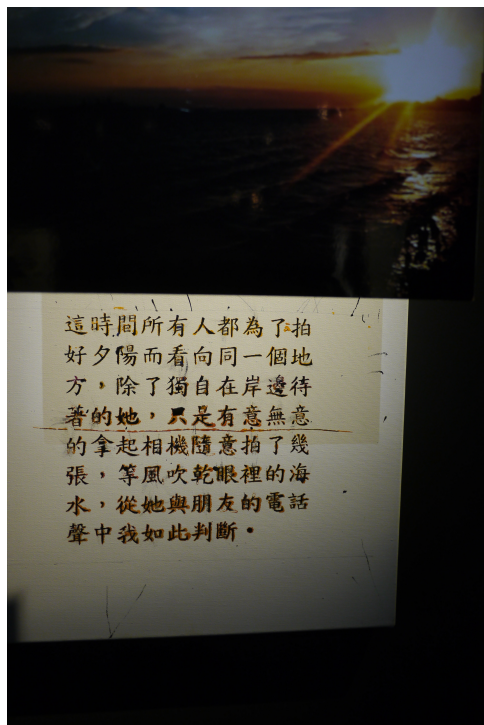 這時間所有人都為了拍
好夕陽而看向同一個地
方，除了獨自在岸邊待
著的她，只是有意無意
的拿起相機隨意拍了幾
張，等風吹乾眼裡的海
水，從她與朋友的電話
聲中我如此判斷。